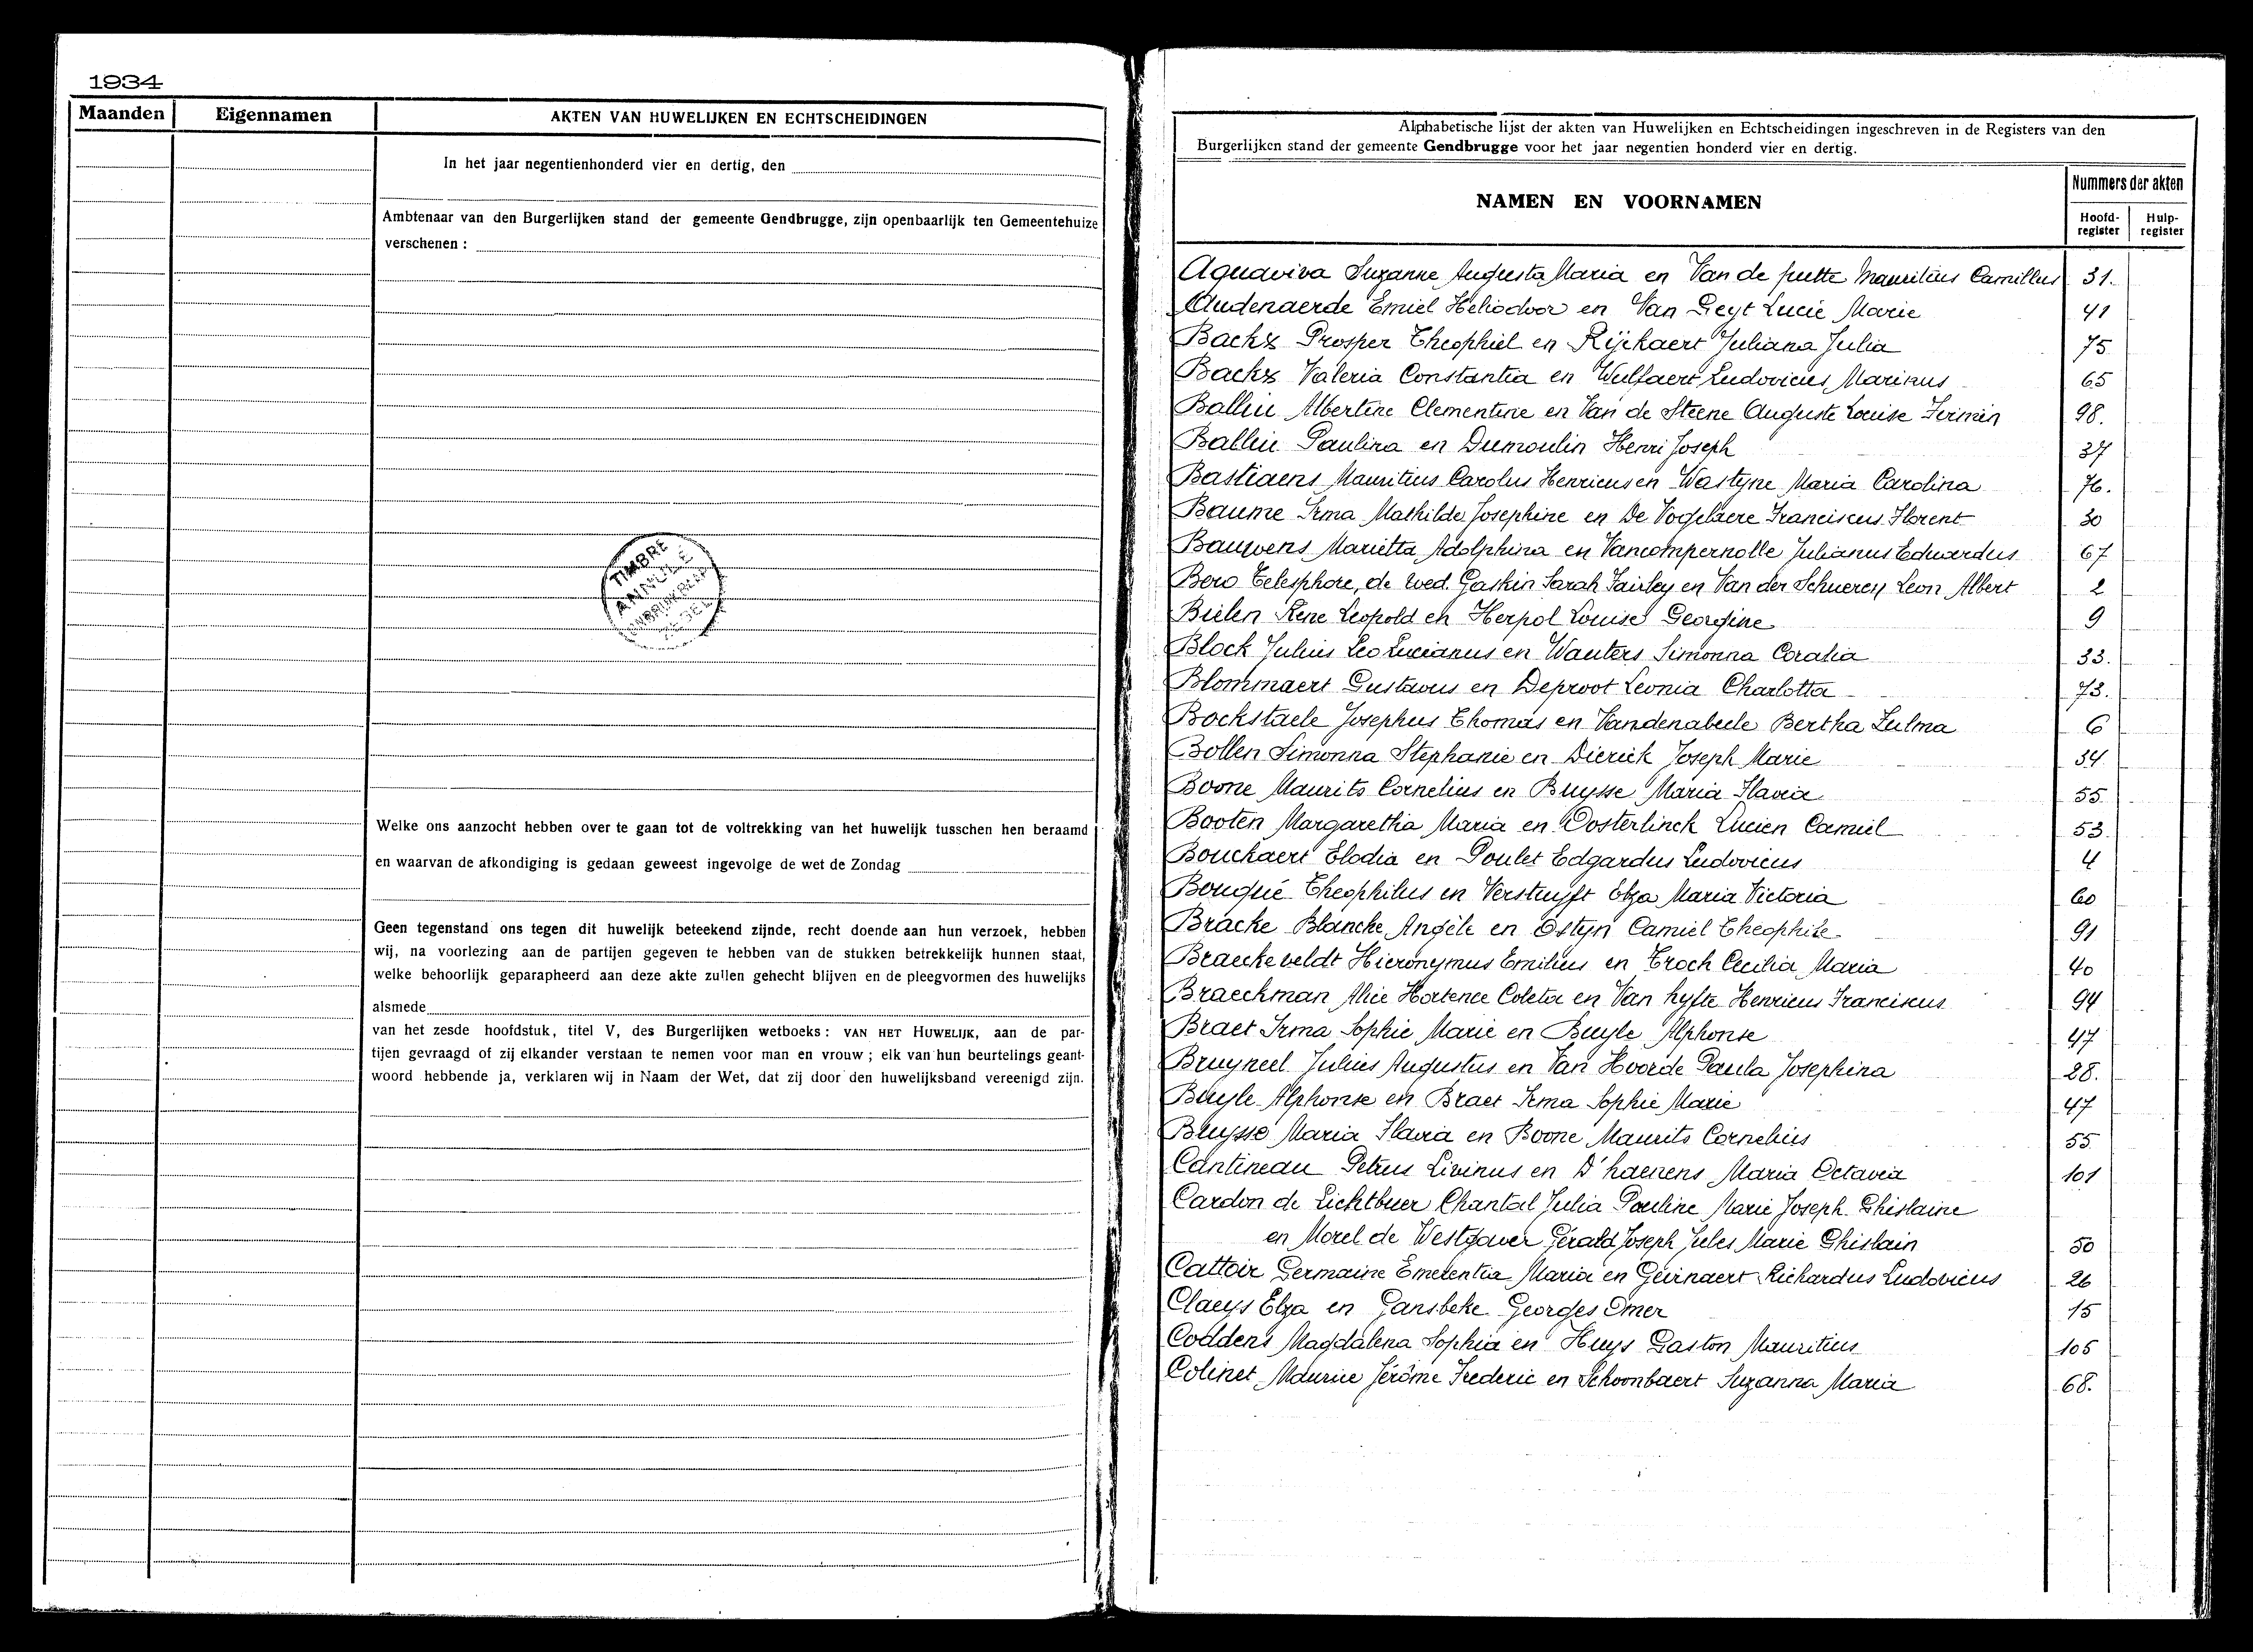 1934
Maanden
Eigennamen
AKTEN VAN HUWELIJKEN EN ECHTSCHEIDINGEN
In het jaar negentienhonderd vier en dertig, den
Ambtenaar van den Burgerlijken stand der gemeente Gendbrugge, zijn openbaarlijk ten Gemeentehuize
verschenen :
TIMBRE
Welke ons aanzocht hebben over te gaan tot de voltrekking van het huwelijk tusschen hen beraamd
en waarvan de afkondiging is gedaan geweest ingevolge de wet de Zondag
Geen tegenstand ons tegen dit huwelijk beteekend zijnde, recht doende aan hun verzoek, hebben
wij, na voorlezing aan de partijen gegeven te hebben van de stukken betrekkelijk hunnen staat,
welke behoorlijk geparapheerd aan deze akte zullen gehecht blijven en de pleegvormen des huwelijks
alsmede
van het zesde hoofdstuk, titel V, des Burgerlijken wetboeks : VAN HET HUWELIJK, aan de par-
tijen gevraagd of zij elkander verstaan te nemen voor man en vrouw ; elk van hun beurtelings geant-
woord hebbende ja, verklaren wij in Naam der Wet, dat zij door den huwelijksband vereenigd zijn.
Alphabetische lijst der akten van Huwelijken en Echtscheidingen ingeschreven in de Registers van den
Burgerlijken stand der gemeente Gendbrugge voor het jaar negentien honderd vier en dertig.
NAMEN EN VOORNAMEN
Nummers der akten
Hoofd-register
Hulp-register
Aquaviva Suzanne Augusta Maria en Van de putte Mauritius Camillus 31.
Audenaerde Emiel Heliodoor en Van Geyt Lucie Marie 41
Backx Prosper Theophiel en Rijckaert Juliana Julia 75
Backx Valeria Constantia en Wulfaert Ludovicus Marinus 65
Balliu Albertine Clementine en Van de Steene Auguste Louise Firmin 98.
Balliu Paulina en Dumoulin Henri Joseph 37
Bastiaens Mauritius Carolus Henricus en Wastyne Maria Carolina 76.
Baume Irma Mathilde Josephine en De Vogelaere Franciscus Florent 30
Bauwens Marietta Adolphina en Vancompernolle Julianus Edwardus 67
Bero Telesphore, de wed. Gaskin Sarah Fairley en Van der Schueren Leon Albert 2
Bielen Rene Leopold en Herpol Louise Georgine 9
Block Julius Leo Lucianus en Wauters Simonna Coralia 33.
Blommaert Gustavus en Deproot Leonia Charlotta 73.
Bockstaele Josephus Thomas en Vandenabeele Bertha Zulma 6
Bollen Simonna Stephanie en Dierick Joseph Marie 34.
Boone Maurits Cornelius en Buysse Maria Flavia 55
Booten Margaretha Maria en Oosterlinck Lucien Camiel 53.
Bouckaert Elodia en Poulet Edgardus Ludovicus 4
Bouqué Theophilus en Verstuyft Elza Maria Victoria 60
Bracke Blanche Angèle en Ostyn Camiel Theophile 91
Braeckeveldt Hieronymus Emilius en Troch Cecilia Maria 40
Braeckman Alice Hortence Coleta en Van hyfte Henricus Franciscus 94
Braet Irma Sophie Marie en Buyle Alphonse 47
Bruyneel Julius Augustus en Van Hoorde Paula Josephina 28.
Buyle Alphonse en Braet Irma Sophie Marie 47
Buysse Maria Flavia en Boone Maurits Cornelius 55
Cantineau Petrus Livinus en D'haenens Maria Octavia 101
Cardon de Lichtbuer Chantal Julia Pauline Marie Joseph Ghislaine
en Morel de Westgaver Gérald Joseph Jules Marie Ghislain 50
Cattoir Germaine Emerentia Maria en Geirnaert Richardus Ludovicus 26
Claeys Elza en Gansbeke Georges Omer 15
Coddens Magdalena Sophia en Huys Gaston Mauritius 105
Colinet Maurice Jérôme Frederic en Schoonbaert Suzanna Maria 68.